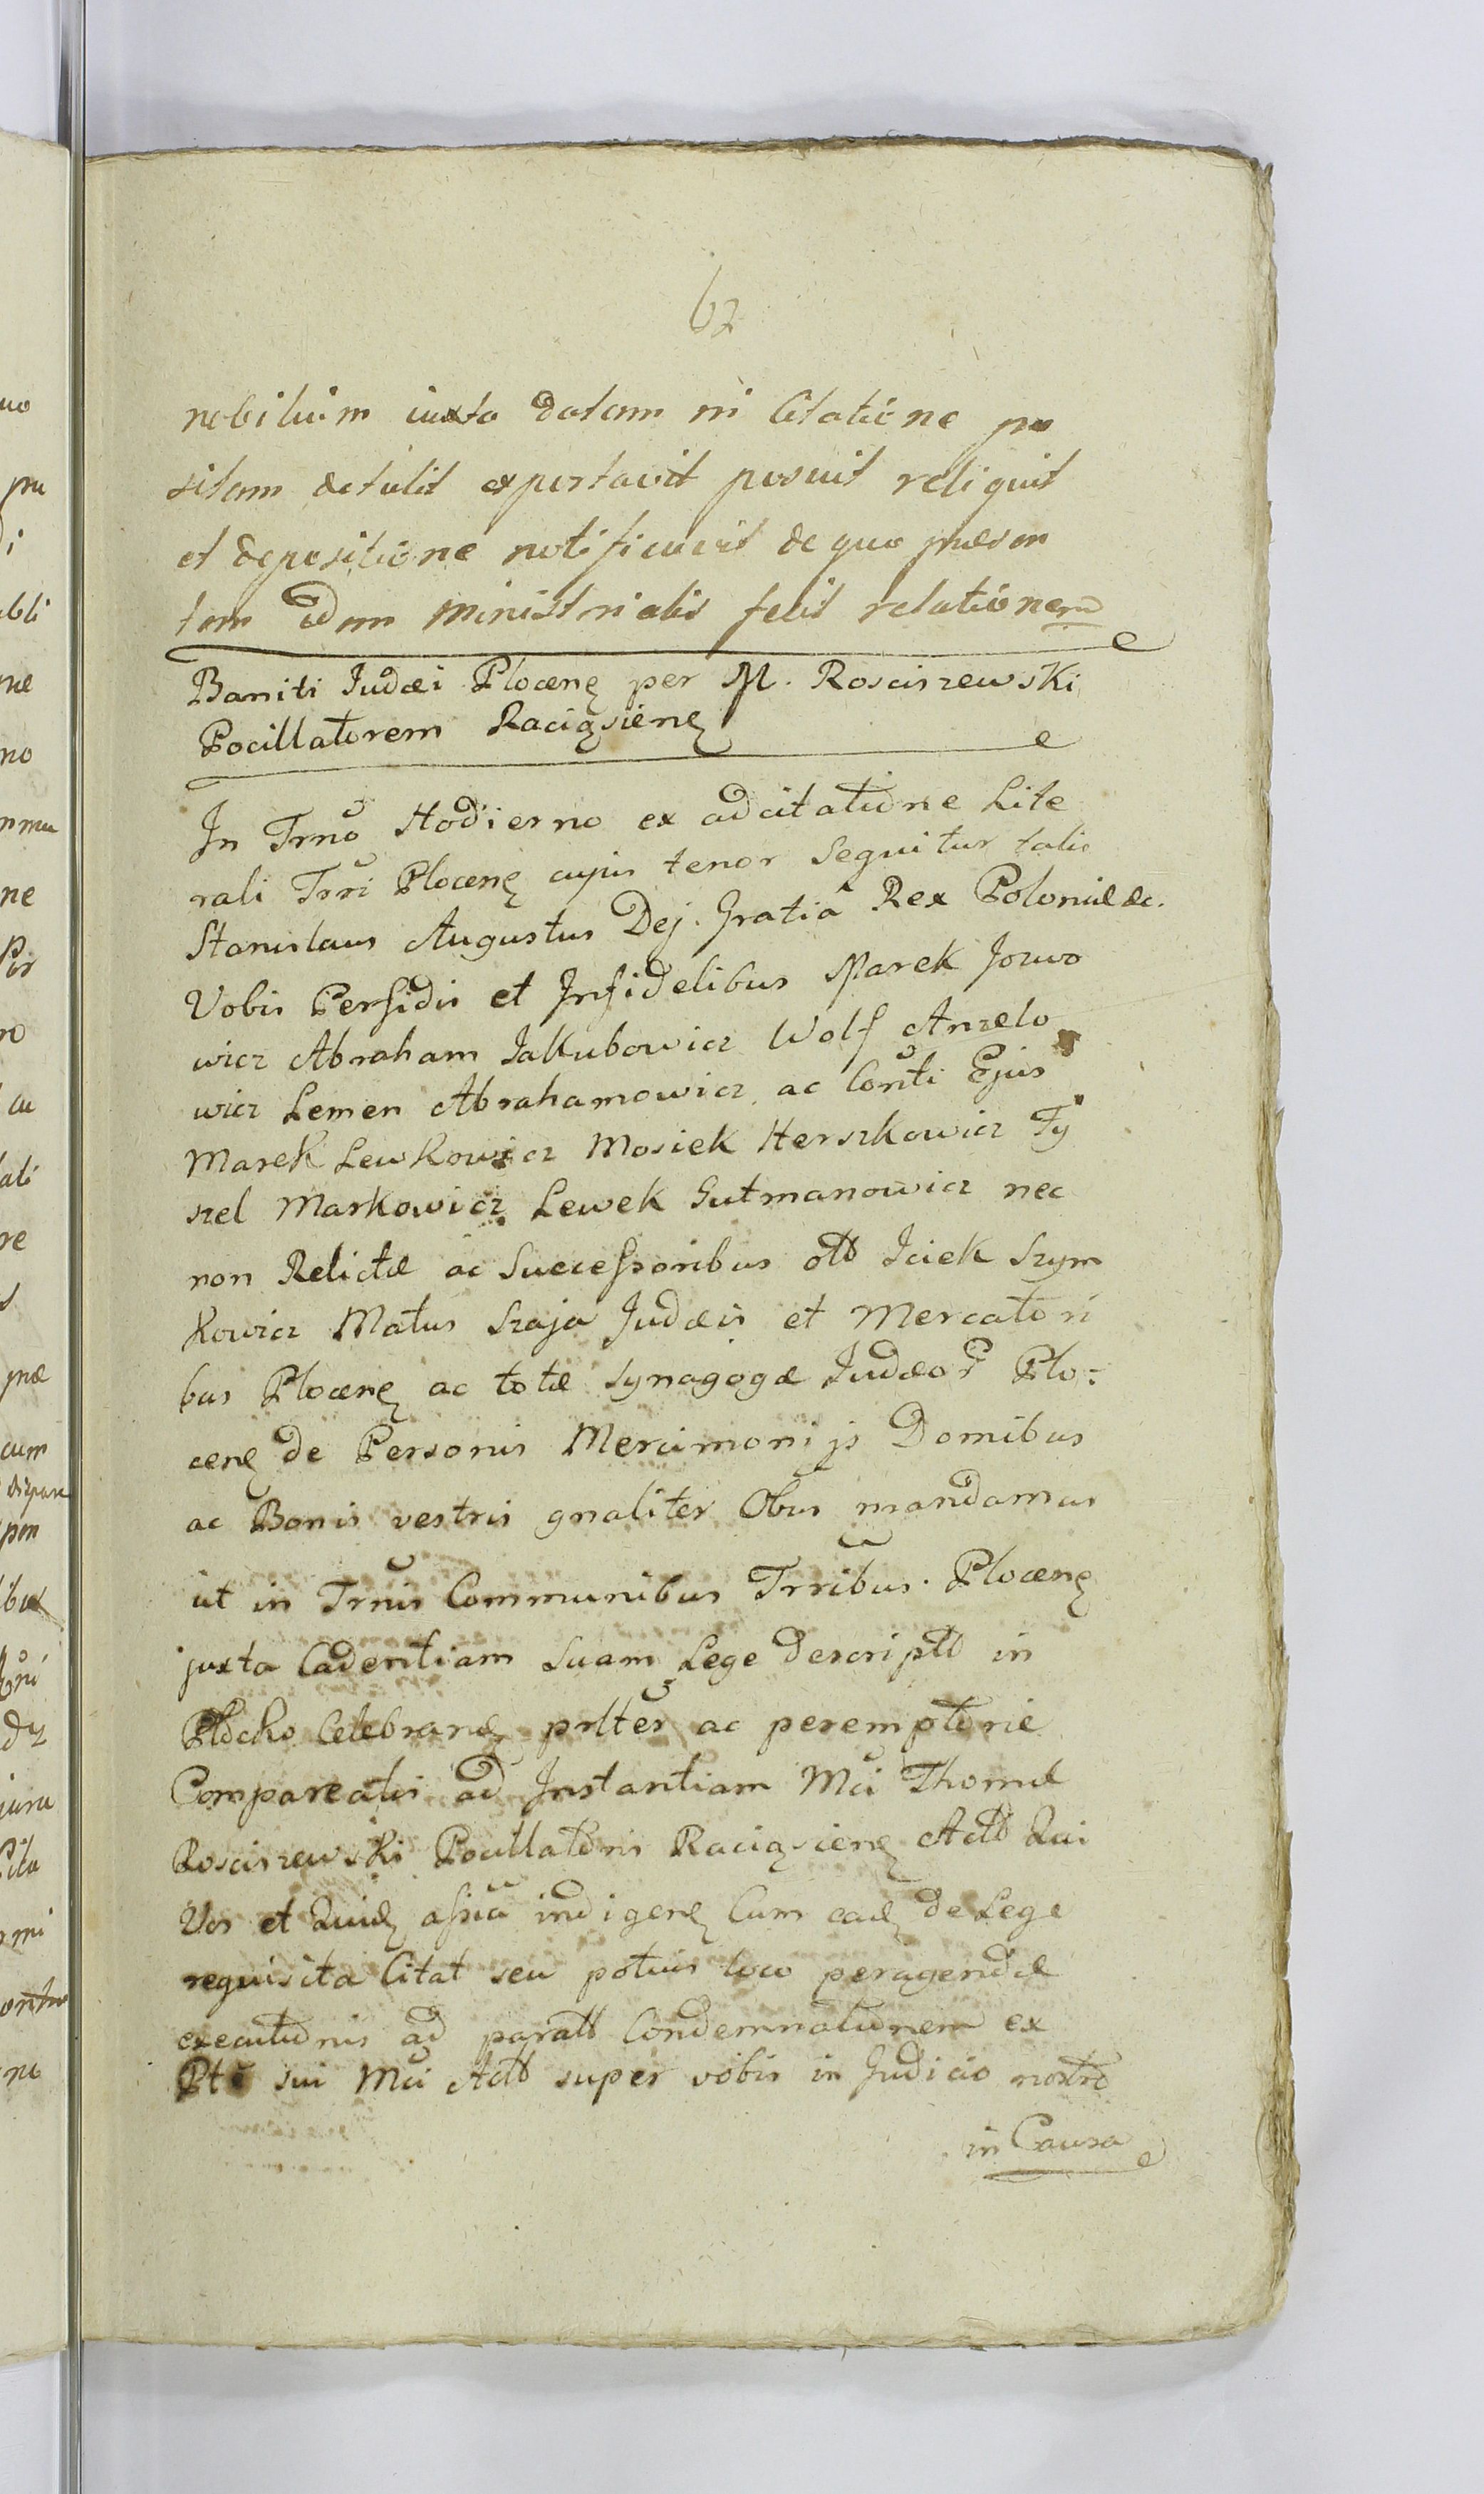 62
nobilium iuxta datam in Citatione po
sitam detulit exportavit posuit reliquit
et depositione notificavit de quo præsen
tem idem ministerialis fecit relationem
Baniti Judæi Plocenȩ per M. Rosciszewski
Pocillatorem Raciąsienȩ
In Trnō Hodierno ex adcitatione Lite
rali Trri Plocenȩ cujus tenor sequitur talis
Stanislaus Augustus Dej. Gratiâ Rex Poloniæ &c.
Vobis Perfidis et Infidelibus Marek Jozwo
wicz Abraham Jakubowicz Wolf Anzelo
wicz Lemen Abrahamowicz ac Conti Ejus
Marek Lewkowicz Mosiek Herszkowicz Fÿ
szel Markowicz Lewek Gutmanowicz nec
non Relictæ ac Successoribus olb Iciek Szym
kowicz Matus Szaja Judæis et Mercatori
bus Plocenȩ ac totæ Synagogæ Judæor Plo:
cenȩ de Personis Mercimonijs Domibus
ac Bonis vestris gnaliter Obus mandamus
ut in Trnis Communibus Trribus. Plocenȩ
juxta Cadentiam Suam Lege descriptb in
Plocko Celebranȩ prltēr ac peremptorie
Compareatis ad Instantiam Mci Thomæ
Rosciszewski Pocillatoris Raciąsienȩ Actb Qui
Vos et Quidȩ assiā indigenȩ Cum eadȩ de Lege
requisita Citat seu potius loco peragendæ
executionis ad paratb Condemnationem ex
Pte sui Mci Actb super vobis in Judicio nostro
in Causa
uo
pu
ubli
ne
no
ne
re
præ
cum
ibus
jura